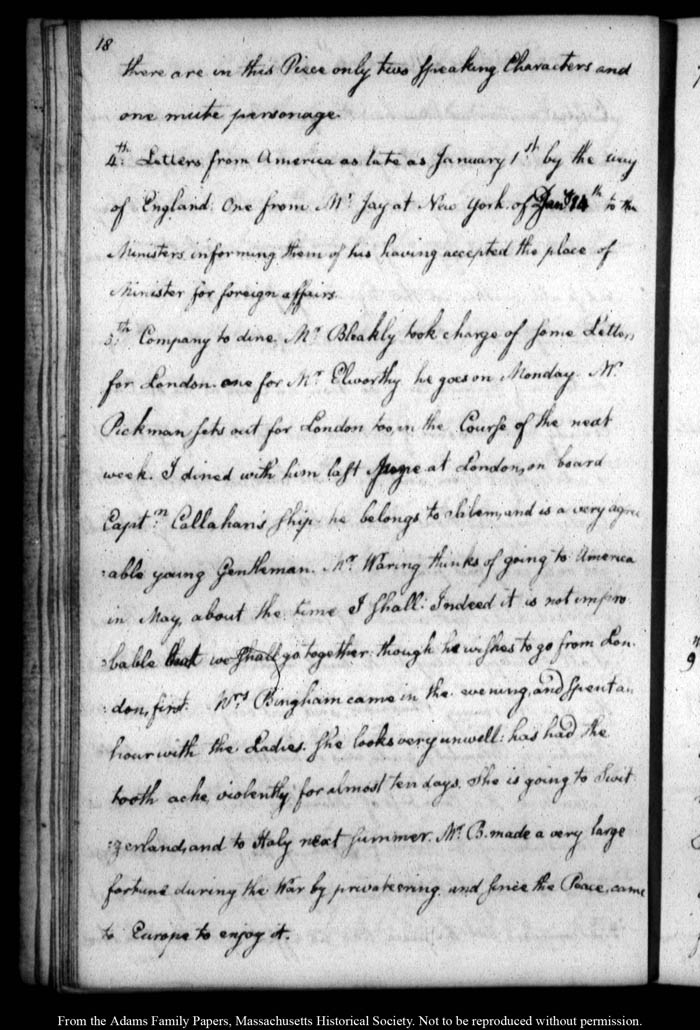 18
there are in this Piece only two speaking Characters and
one mute personage.
4.th Letters from America as late as January 1.st by the way
of England. One from Mr. Jay at New York. of Jany 14th to the
Ministers informing them of his having accepted the place of
Minister for foreign affairs.
5.th Company to dine. Mr. Bleakly took charge of some Letters
for London. one for Mr. Elworthy. he goes on Monday. Mr.
Pickman sets out for London too, in the Course of the next
week. I dined with him last June at London, on board
Capt.n Callahan's ship. he belongs to Salem, and is a very agree
:able young Gentleman. Mr. Waring thinks of going to America
in May, about the time I shall: Indeed it is not impro
:bable that we shall go together: though he wishes to go from Lon:
:don, first. Mrs. Bingham came in the evening, and spent an
hour with the Ladies. She looks very unwell: has had the
tooth ache, violently for almost ten days. She is going to Swit
:zerland, and to Italy next summer. Mr. B. made a very large
fortune during the War by privateering, and since the Peace, came
to Europe to enjoy it.
From the Adams Family Papers, Massachusetts Historical Society. Not to be reproduced without permission.